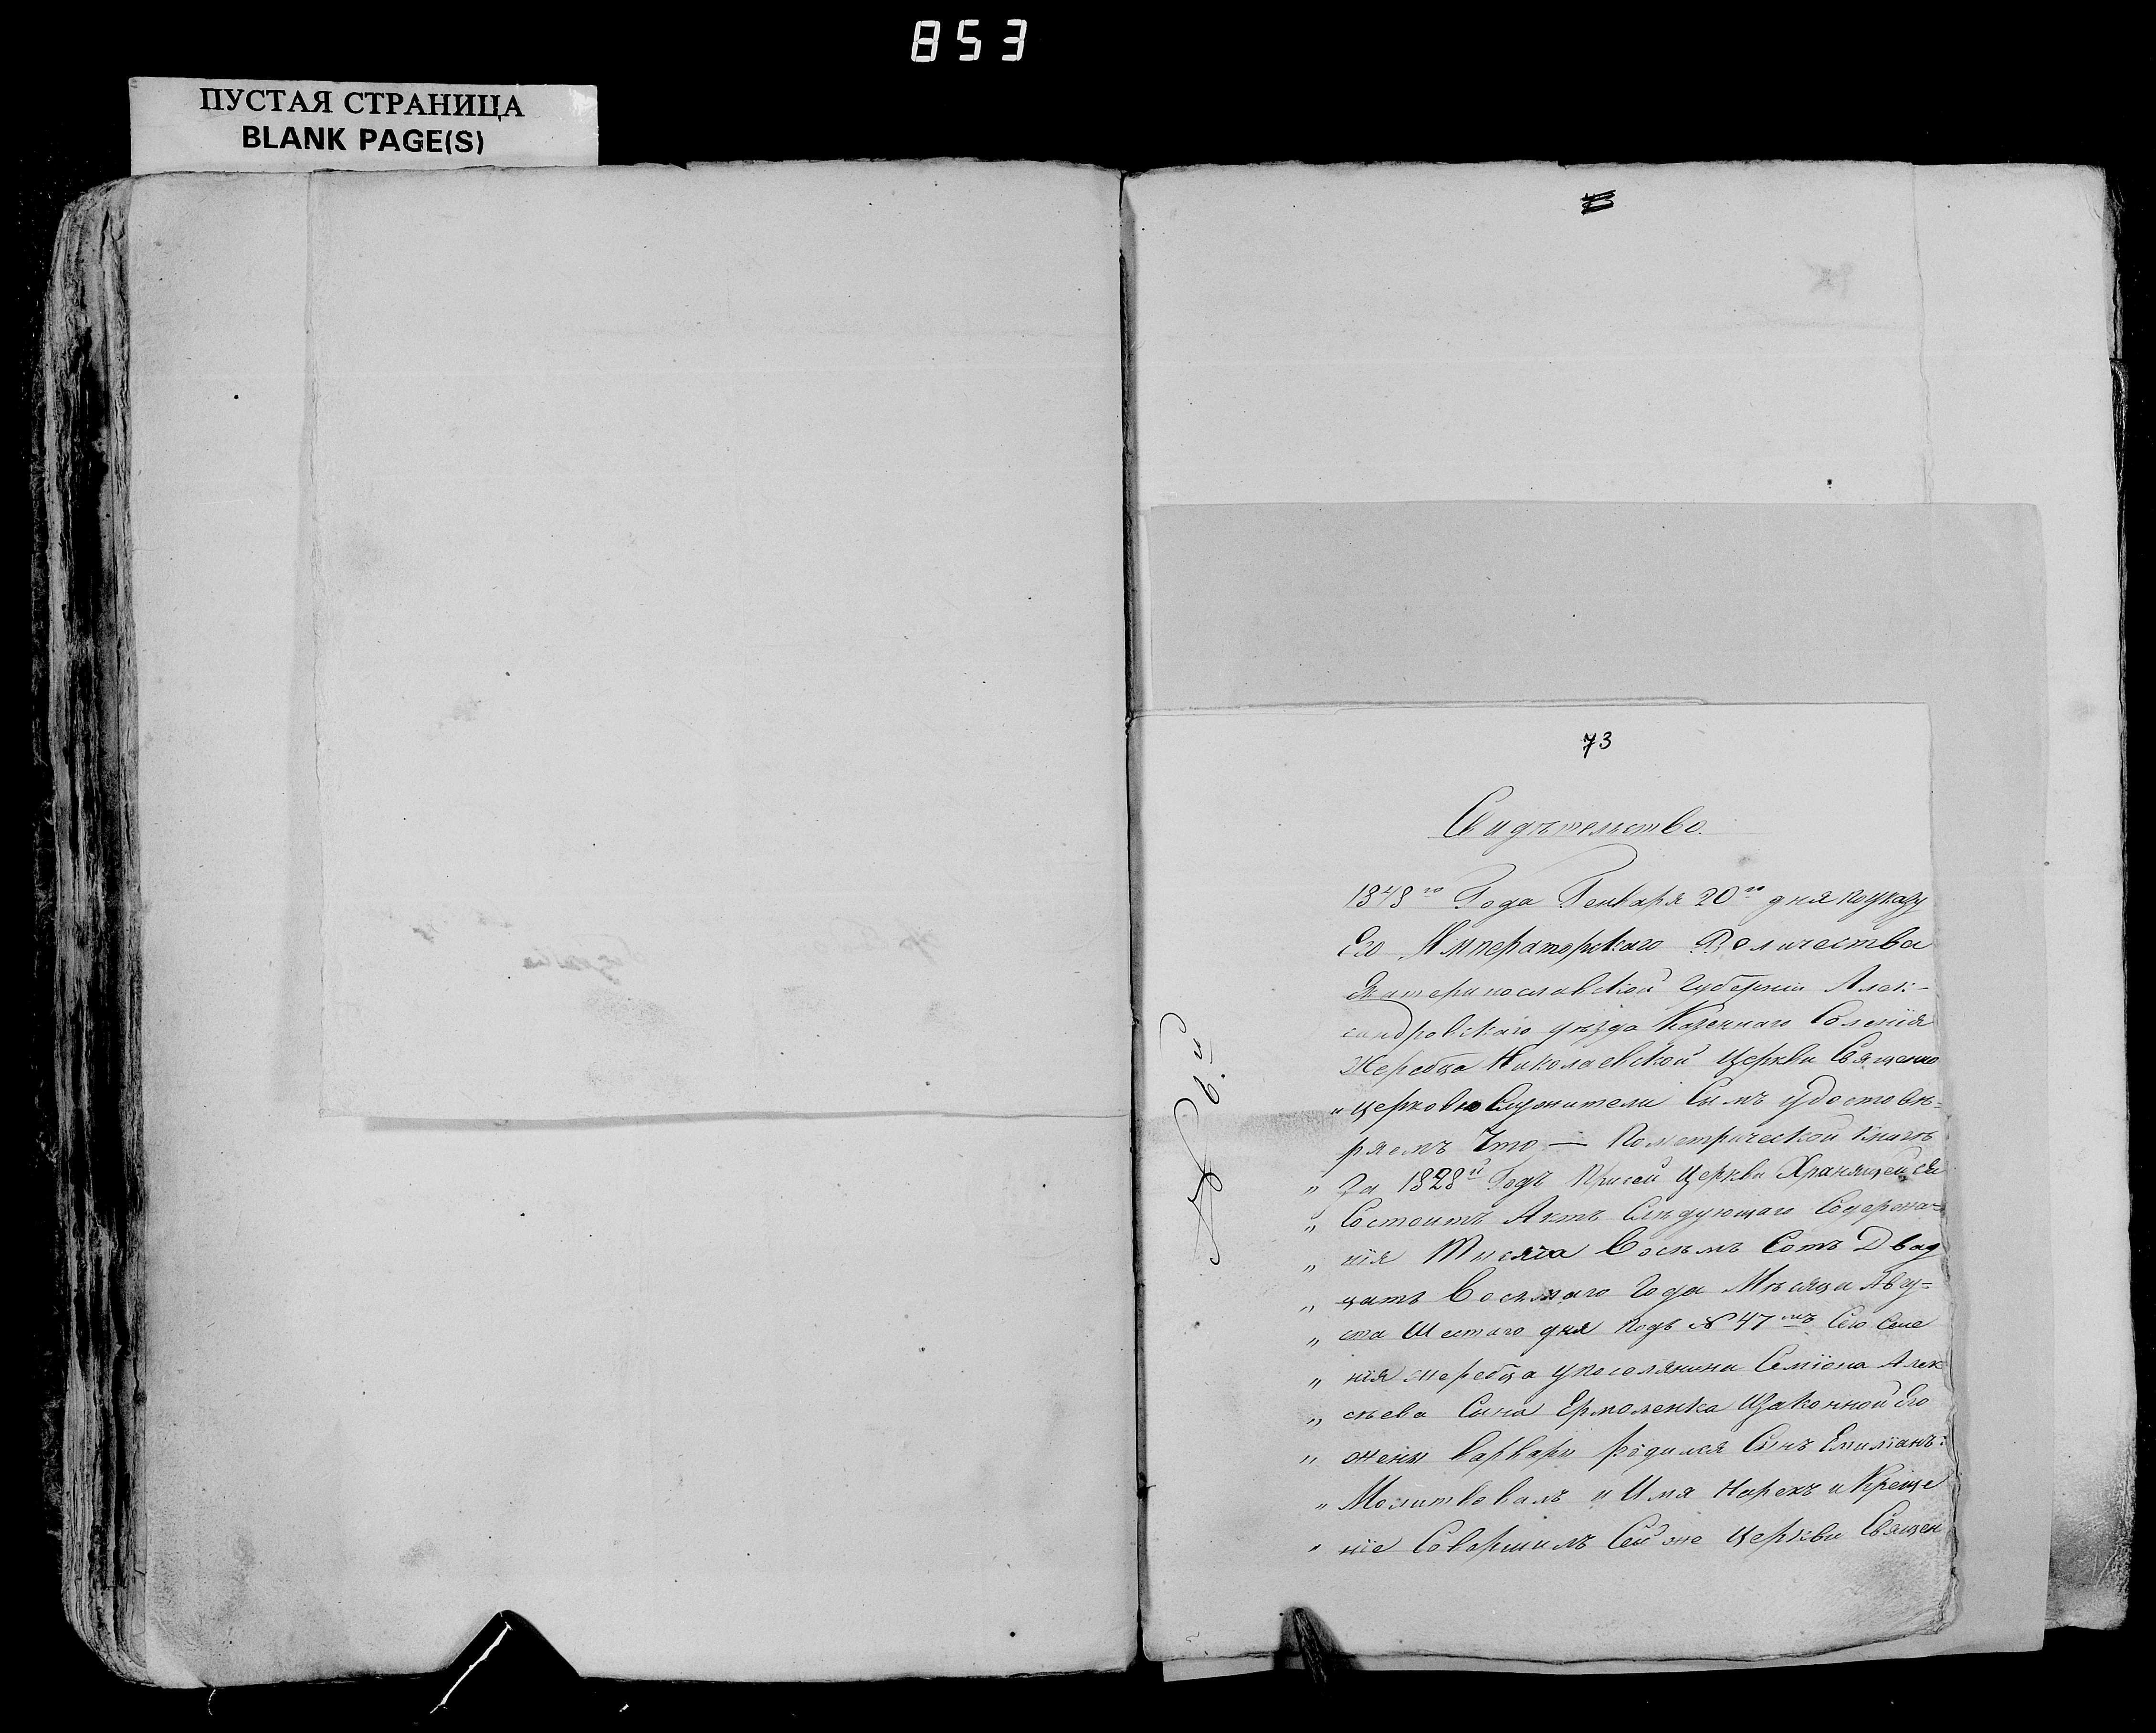 853
ПУСТАЯ СТРАНИЦА
BLANK PAGE(S)
73
Свидѣтельство.
1848го Года Генваря 20го дня по указу
Его Императорскаго Величества
Екатеринославской Губернии Алек-
сандровскаго уѣзда Казеннаго Селенія
Жеребца Николаевской Церкви Священно
„ церковно Служители Симъ удостовѣ=
ряемъ Что — По метрической книгѣ
„ За 1828й Годъ При сей Церкви Хранящейся
„ Состоитъ Актъ Слѣдующаго Содержа=
„ нія Тысяча Восѣмъ Сотъ Двад
„ цать Восѣмаго Года Мѣсяца Авгу=
„ ста Шестаго дня подъ № 47мъ Сего Селе
„ нія жеребца у поселянина Семіона Алек
„ сѣева Сына Ермоленка И Законной Его
„ жены Варвары родился Сынъ Емиліанъ:
„ Молитвовалъ и Имя Нарекъ и Креще
„ ніе Совершилъ Сей же Церкви Священ